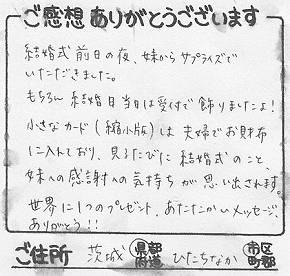 ご感想 ありがとうございます
結婚式前日の夜、妹からサプライズで
いただきました。
もちろん 結婚日当日は受付で飾りましたよ！
小さなカード(縮小版)は 夫婦でお財布
に入れており、見るたびに 結婚式のこと、
妹への感謝への気持ちが思い出されます。
世界に1つのプレゼント、あたたかいメッセージ、
ありがとう！！
ご住所 茨城 都道府県 ひたちなか 市区町郡